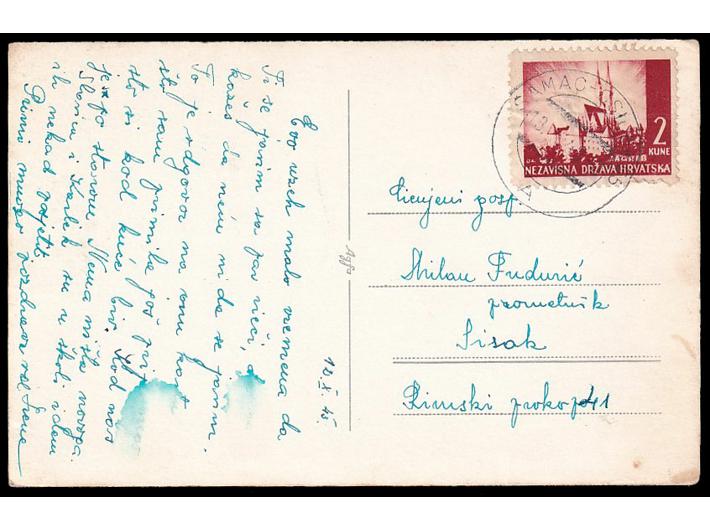 Evo uzeh malo vremena da
Ti se javim sa par riječi, a
kažeš da neću ni da se javim.
To je odgovor na onu kart
što sam primila još prije
što si kod kuće bio. Kod nas
je po starome. Nema ništa novoga.
i su u školi idem
ih nekad posjetit
Primi mnogo pozdrava od Irene
12. X.
Agfa
ŠAMAC
2
KUNE
ZAGREB
NEZAVISNA DRŽAVA HRVATSKA
Cijenjeni gosp.
Milan Fudurić
prometnik
Sisak
Rimski prokop 41